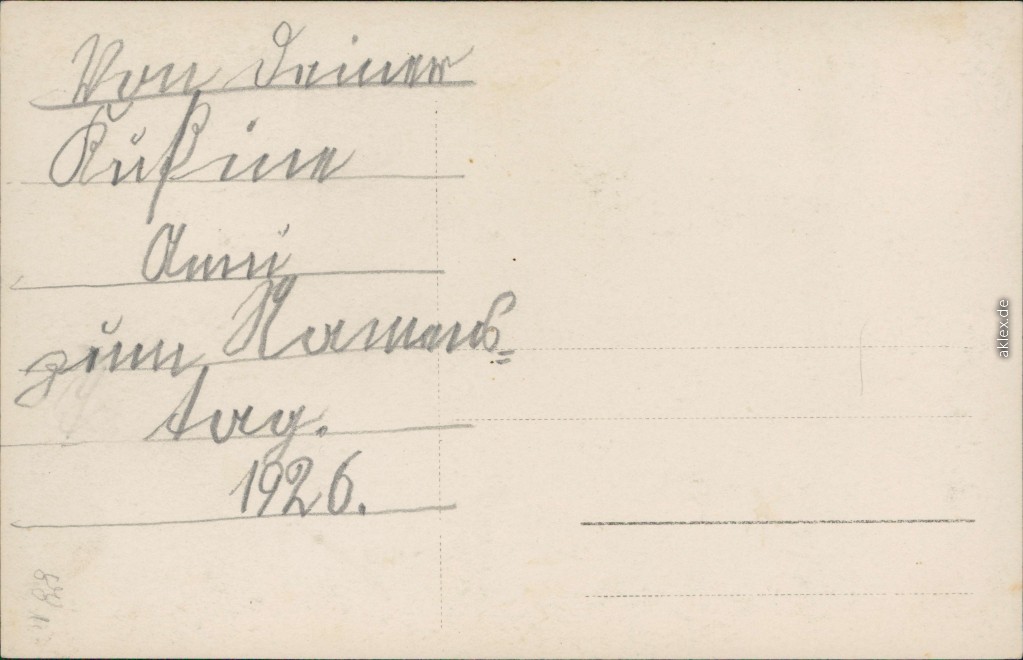 Von Deiner
Kußine
Anni
zum Namens=
tag.
1926.
aklex.de